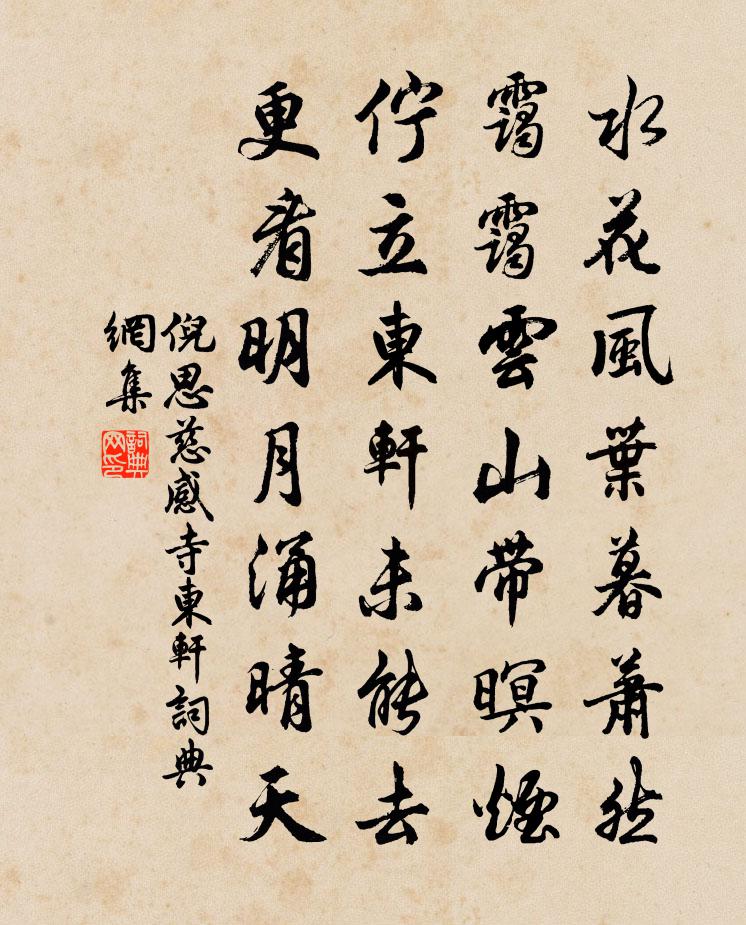 水花風葉暮蕭然
靄靄雲山帶暝煙
佇立東軒未能去
更看明月涌晴天
倪思慈感寺東軒詞典
網集
詞典
网印